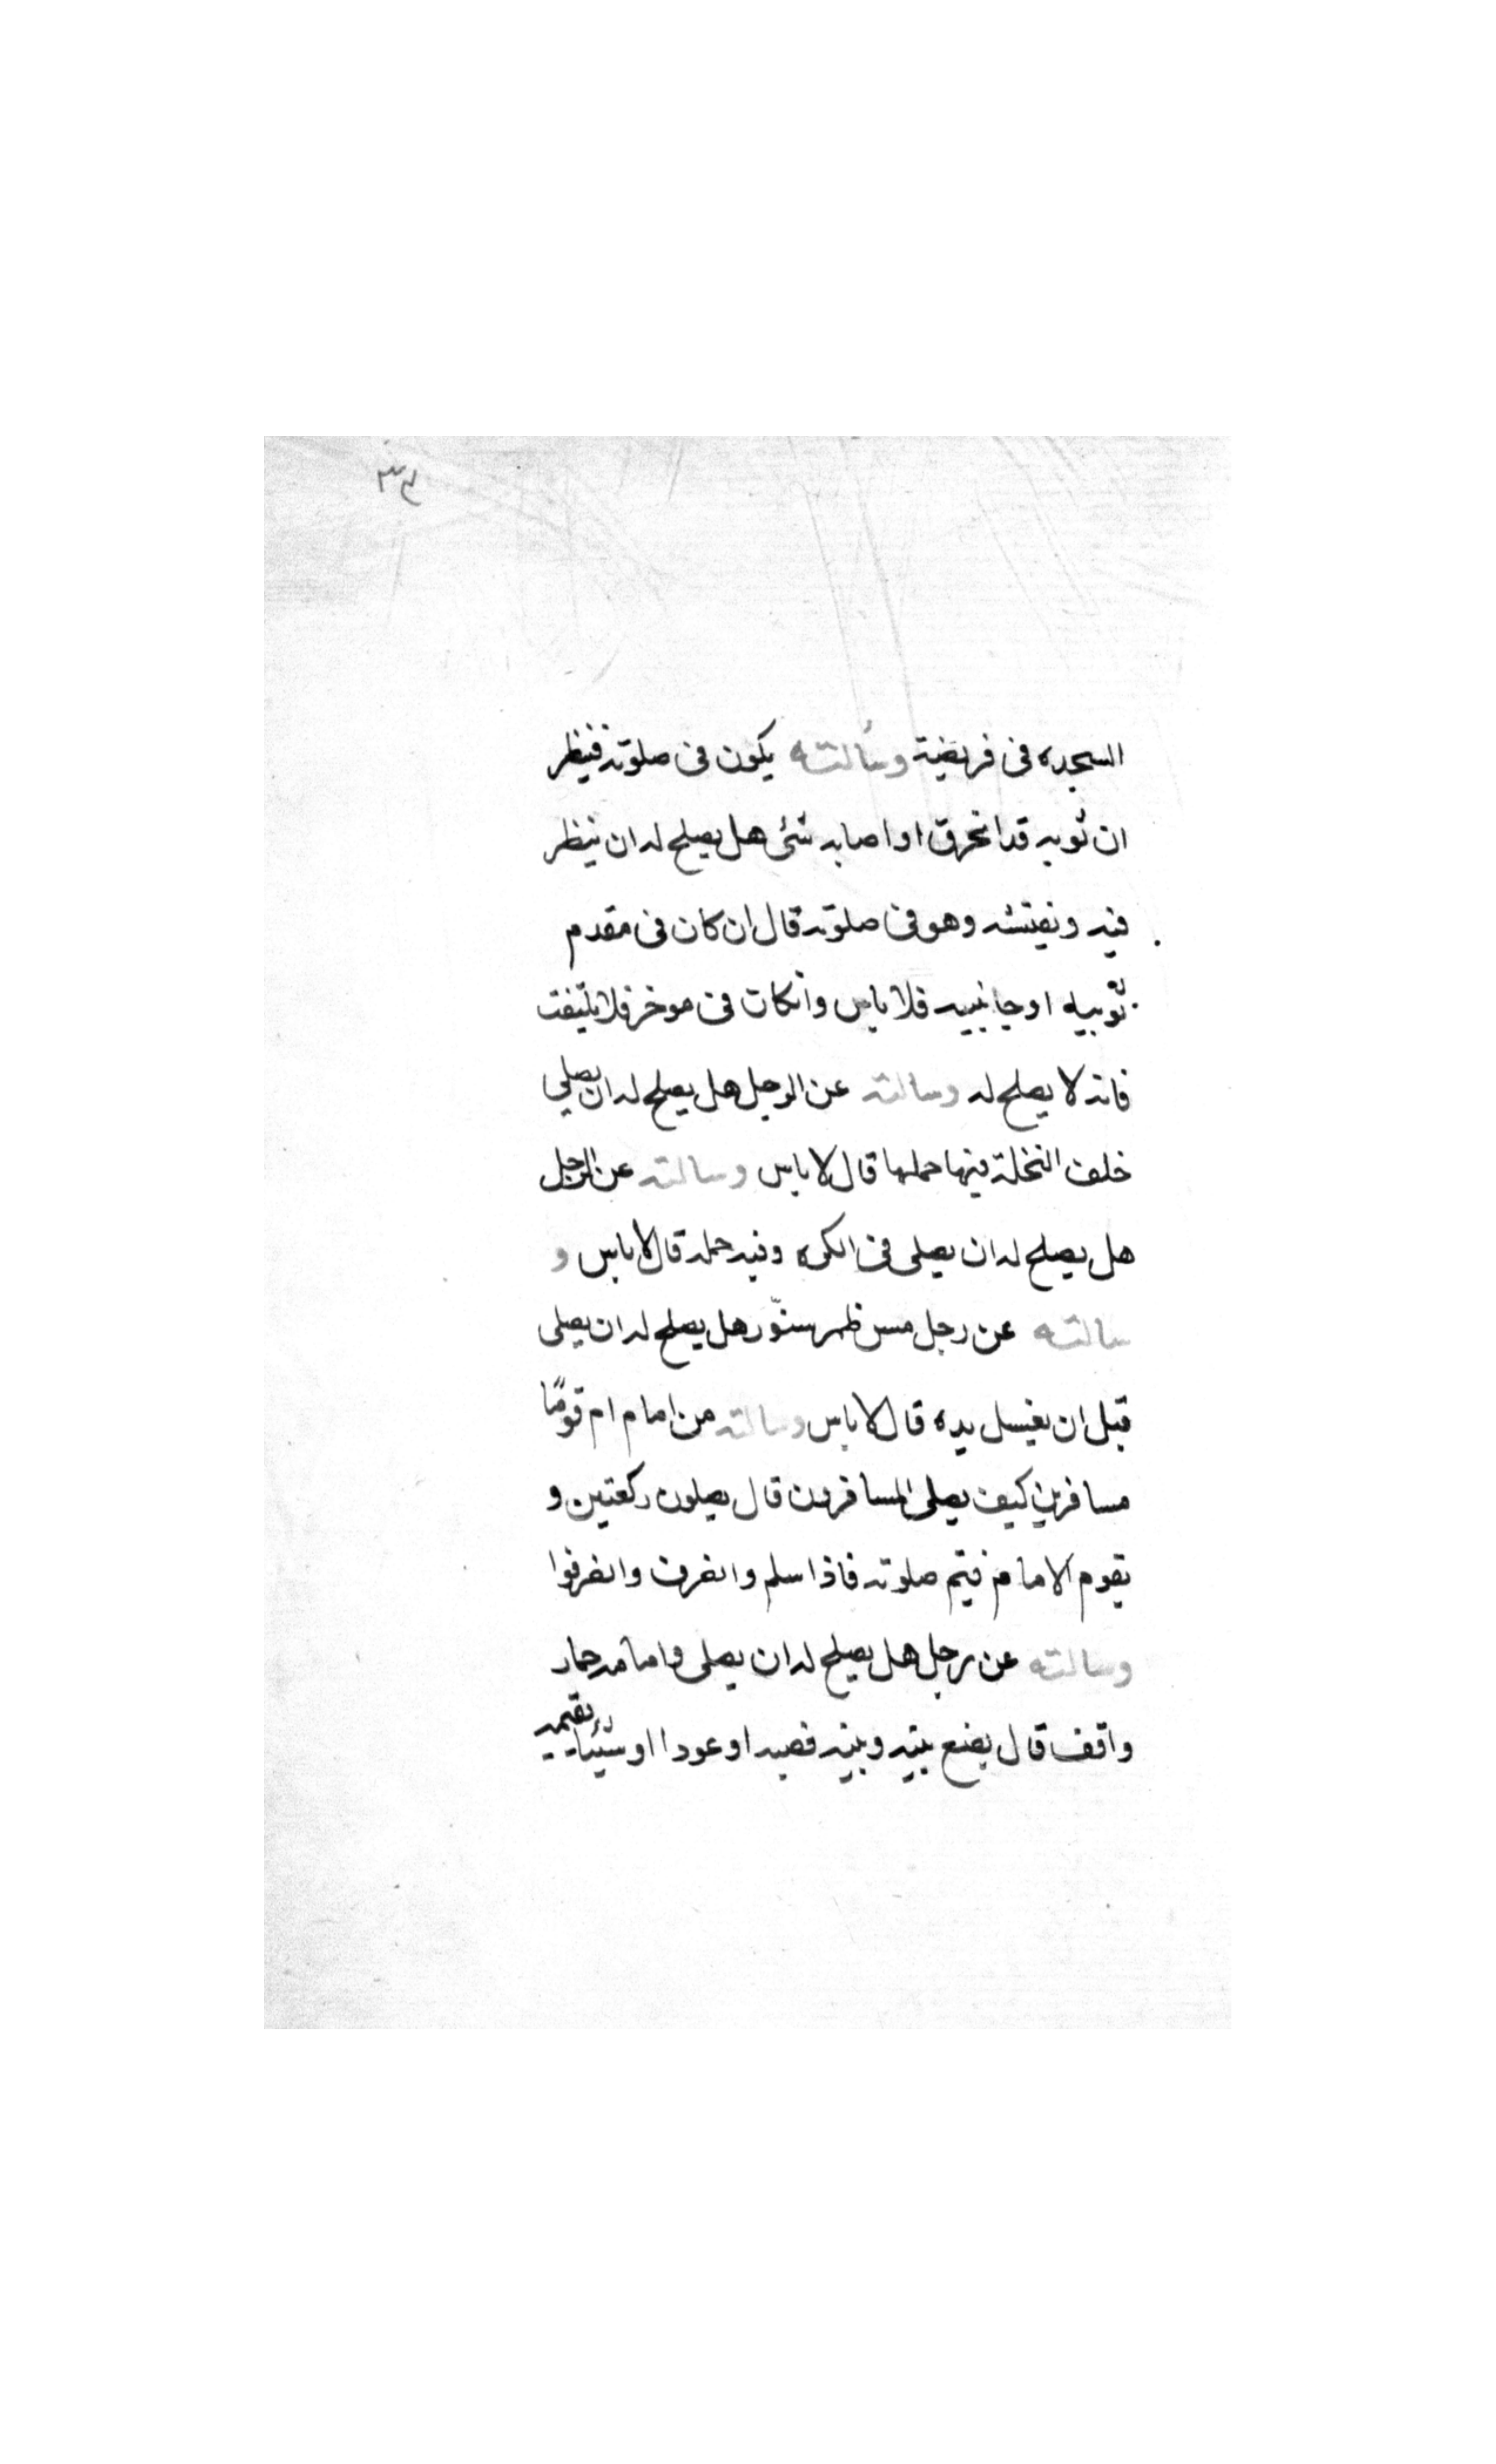 ٣٤
السجده فى فريضة وسألته يكون فى صلوته فينظر
ان ثوبه قد انخرق او اصابه شئ هل يصلح له ان ينظر
فيه ويفتشه وهو فى صلوته قال ان كان فى مقدم
ثوبيه او جانبيه فلا باس وانكات فى موخره فلا يلتفت
فانه لا يصلح له وسالته عن الرجل هل يصلح له ان يصلي
خلف النخلة فيها حملها قال لا باس وسالته عن الرجل
هل يصلح له ان يصلى فى الكره وفيه حمله قال لا باس و
سالته عن رجل مس ظهر سنّور هل يصلح له ان يصلى
قبل ان يغسل يده قال لا باس وسالته من امام ام قومًا
مسافرين كيف يصلى المسافرون قال يصلون ركعتين و
يقوم الامام فيتم صلوته فاذا سلم وانصرف وانصرفوا
وسالته عن رجل هل يصلح له ان يصلى وامامه حمار
واقف قال يضع بينه وبينه قصبه او عودا او شيئا يقيمه